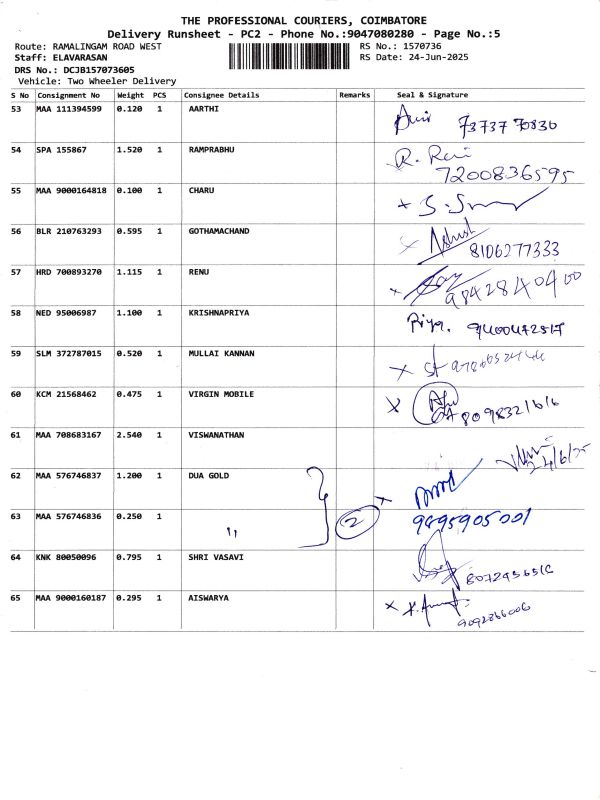 THE PROFESSIONAL COURIERS, COIMBATORE
Delivery Runsheet - PC2 - Phone No.:9047080280 - Page No.:5
Route: RAMALINGAM ROAD WEST RS No.: 1570736
Staff: ELAVARASAN RS Date: 24-Jun-2025
DRS No.: DCJB157073605
Vehicle: Two Wheeler Delivery
S No Consignment No Weight PCS Consignee Details Remarks Seal & Signature
53 MAA 111394599 0.120 1 AARTHI
73737 70830
54 SPA 155867 1.520 1 RAMPRABHU
7200836595
55 MAA 9000164818 0.100 1 CHARU
56 BLR 210763293 0.595 1 GOTHAMACHAND
8106277333
57 HRD 700893270 1.115 1 RENU
98428 404 00
58 NED 95006987 1.100 1 KRISHNAPRIYA
Priya.
59 SLM 372787015 0.520 1 MULLAI KANNAN
60 KCM 21568462 0.475 1 VIRGIN MOBILE
61 MAA 708683167 2.540 1 VISWANATHAN
24/6/25
62 MAA 576746837 1.200 1 DUA GOLD
63 MAA 576746836 0.250 1 " 2
9895905001
64 KNK 80050096 0.795 1 SHRI VASAVI
65 MAA 9000160187 0.295 1 AISWARYA